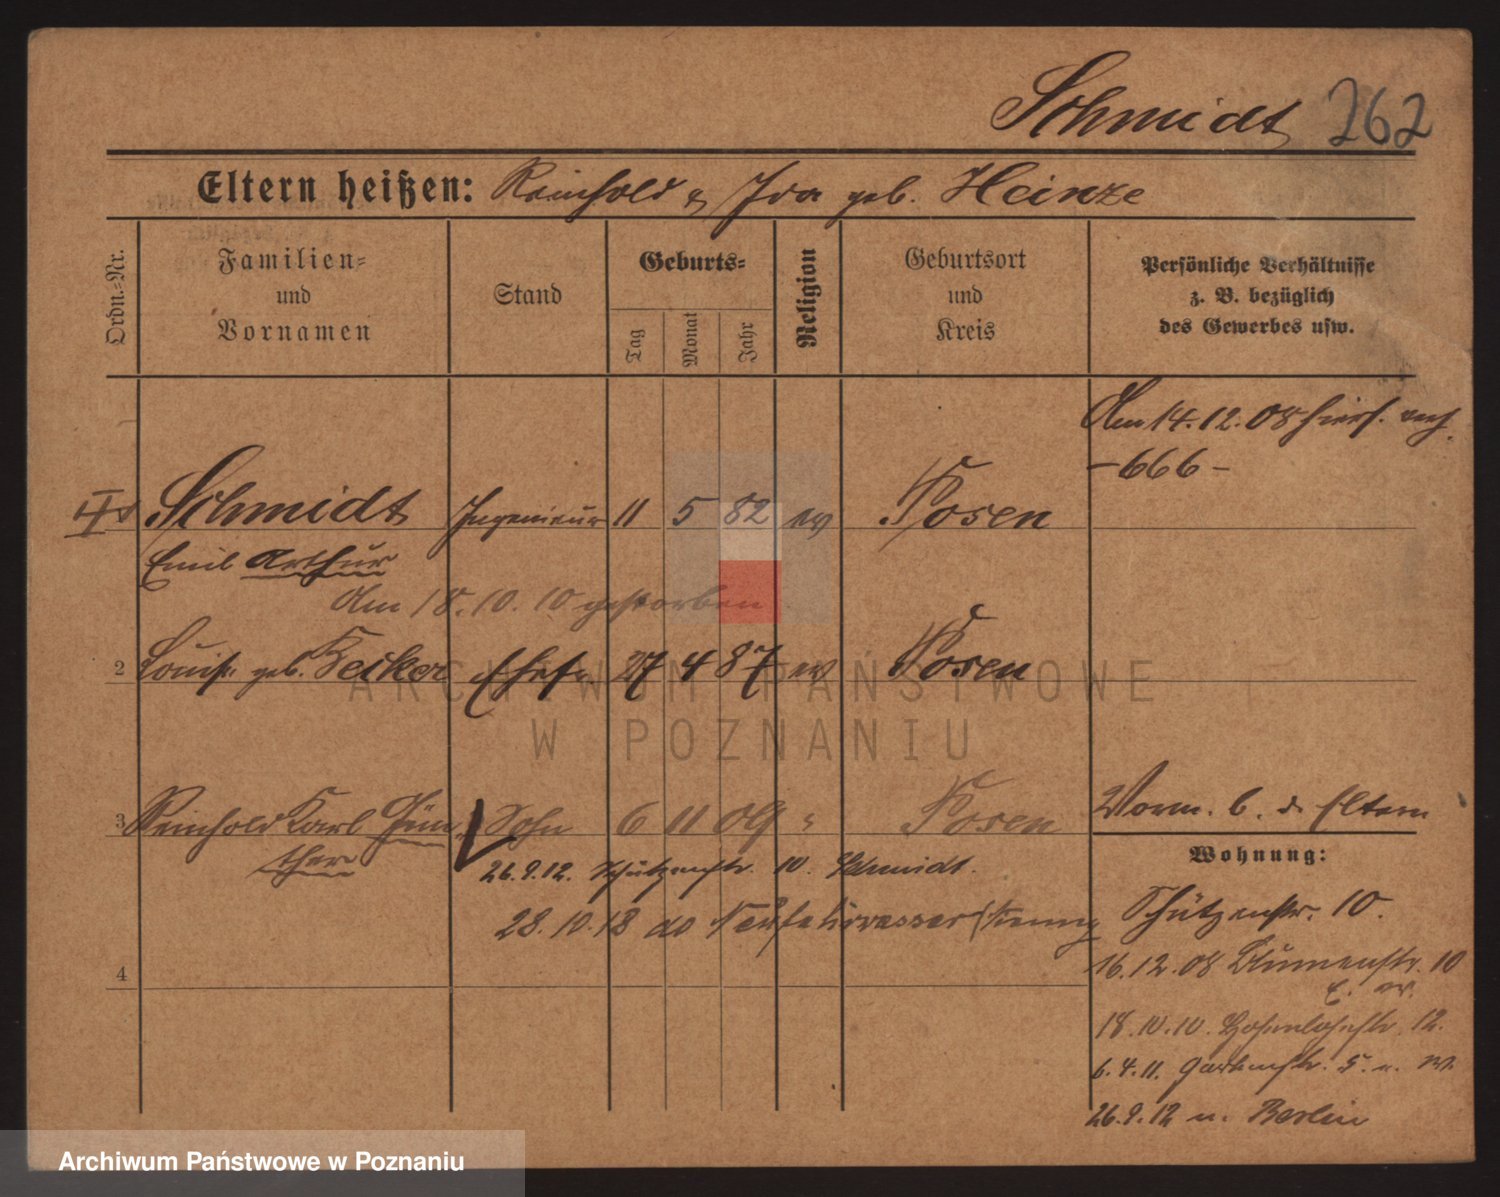 Schmidt 262
Eltern heißen: Reinhold & Ida geb. Heinze
Ordn.-Nr.
Familien-
und
Vornamen
Stand
Geburts-
Tag
Monat
Jahr
Religion
Geburtsort
und
Kreis
Persönliche Verhältnisse
z. B. bezüglich
des Gewerbes usw.
Am 14.12.08 hiers. verh.
-666-
Schmidt Ingenieur 11 5 82 ev Posen
Emil Arthur
Am 18.10.10 gestorben
2 Louise geb. Ehefr. 27 4 87 ev Posen
3 Reinhold Karl Gün- Sohn 6 11 09 " Posen
ther
Vorm. b. d. Eltern
26.9.12. Schützenstr. 10. Schmidt.
28.10.18 do Neufahrwasser
4
Wohnung:
Schützenstr. 10.
16.12.08 Blumenstr. 10
18.10.10. Hohenlohestr. 12.
6.4.11. Gartenstr. 5.
26.9.12 n. Berlin
ARCHIWUM PAŃSTWOWE
W POZNANIU
Archiwum Państwowe w Poznaniu